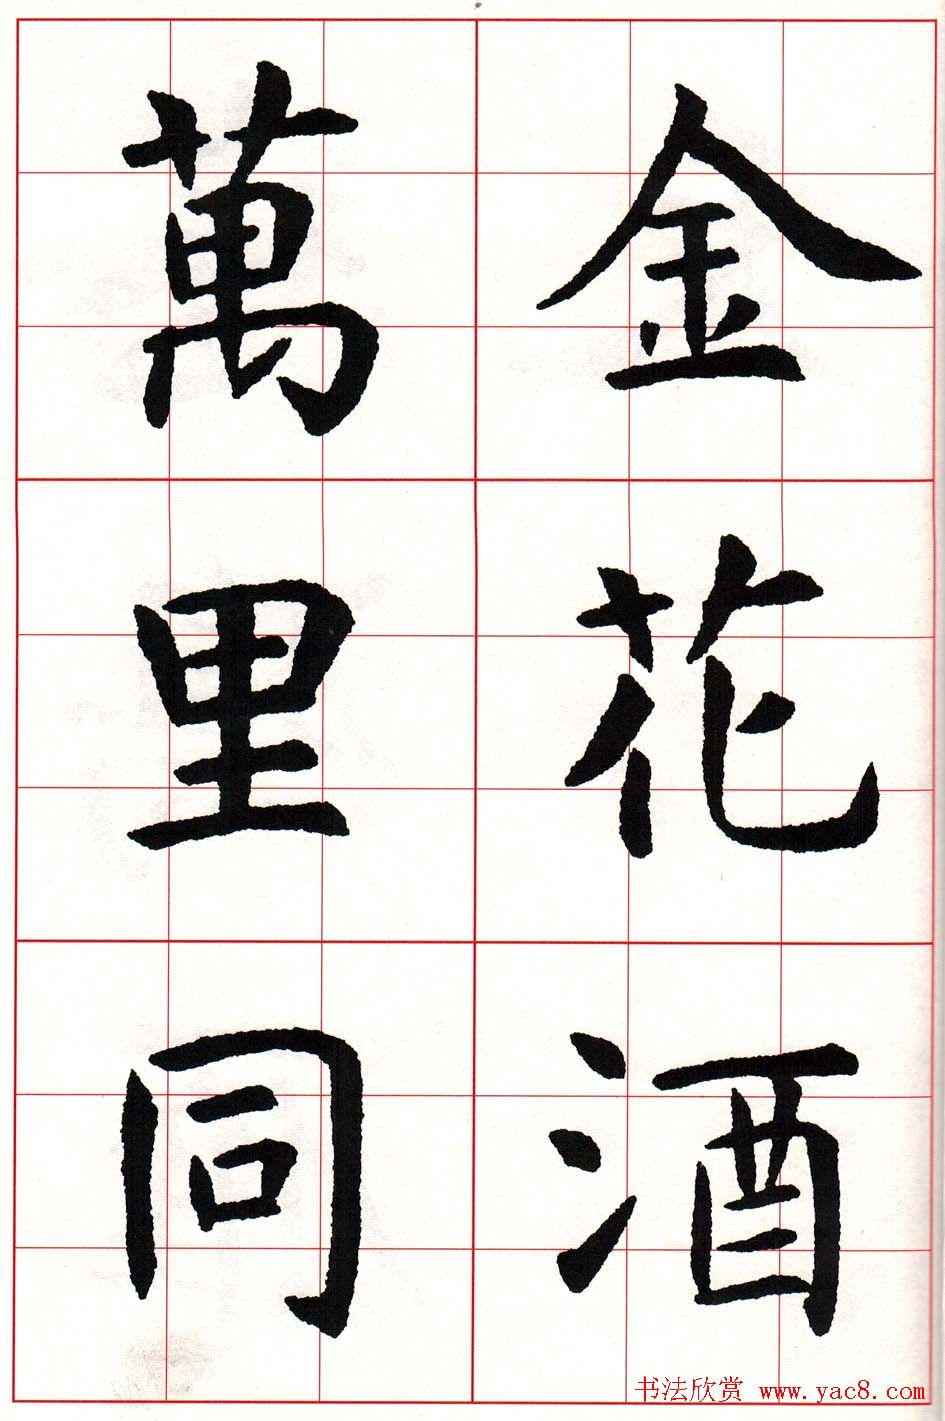 金花酒
萬里同
书法欣赏 www.yac8.com